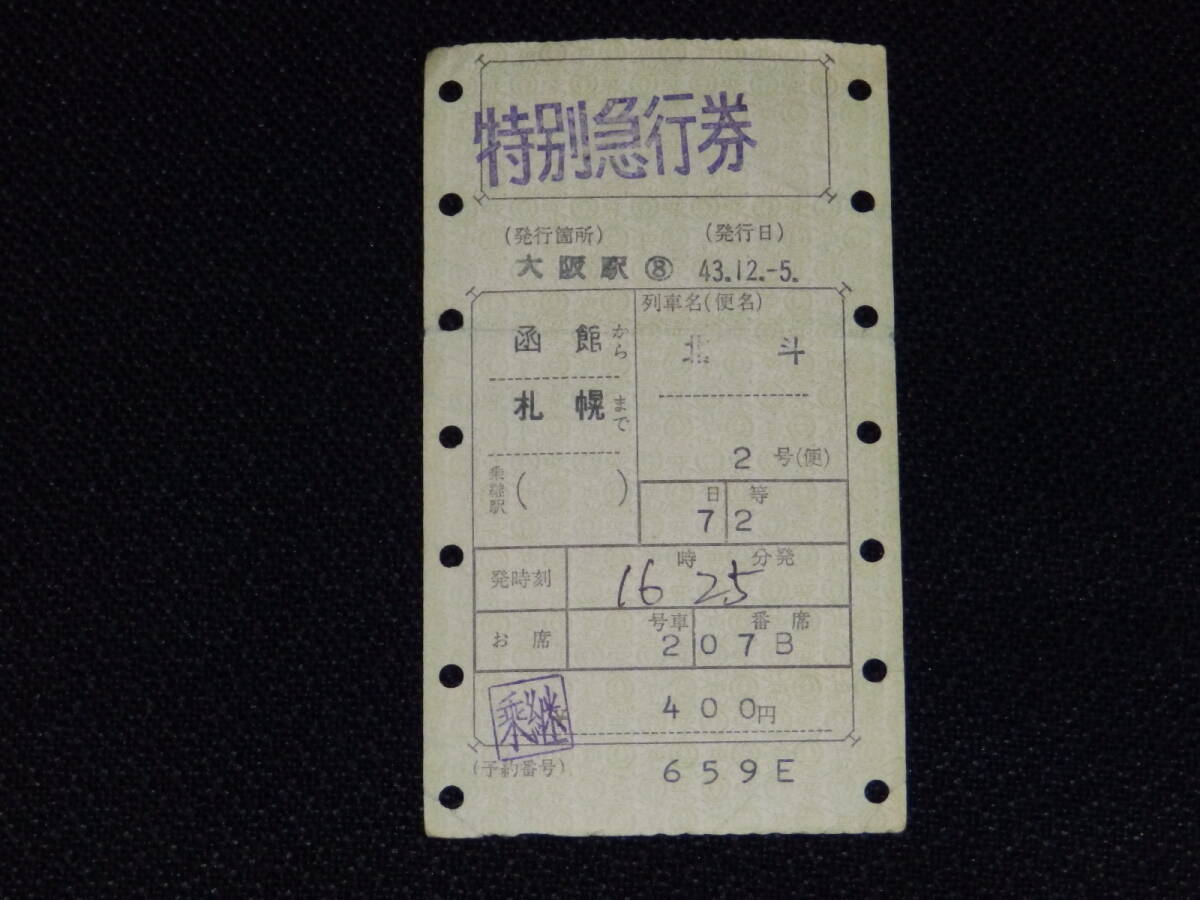 特別急行券
(発行箇所) (発行日)
大阪駅⑧ 43.12.-5.
列車名(便名)
函館から
北斗
札幌まで
2 号(便)
乗継駅( )
日 等
7 2
時 分発
発時刻 16 25
号車 番席
お席 2 07B
乗継 400円
(予約番号) 659E